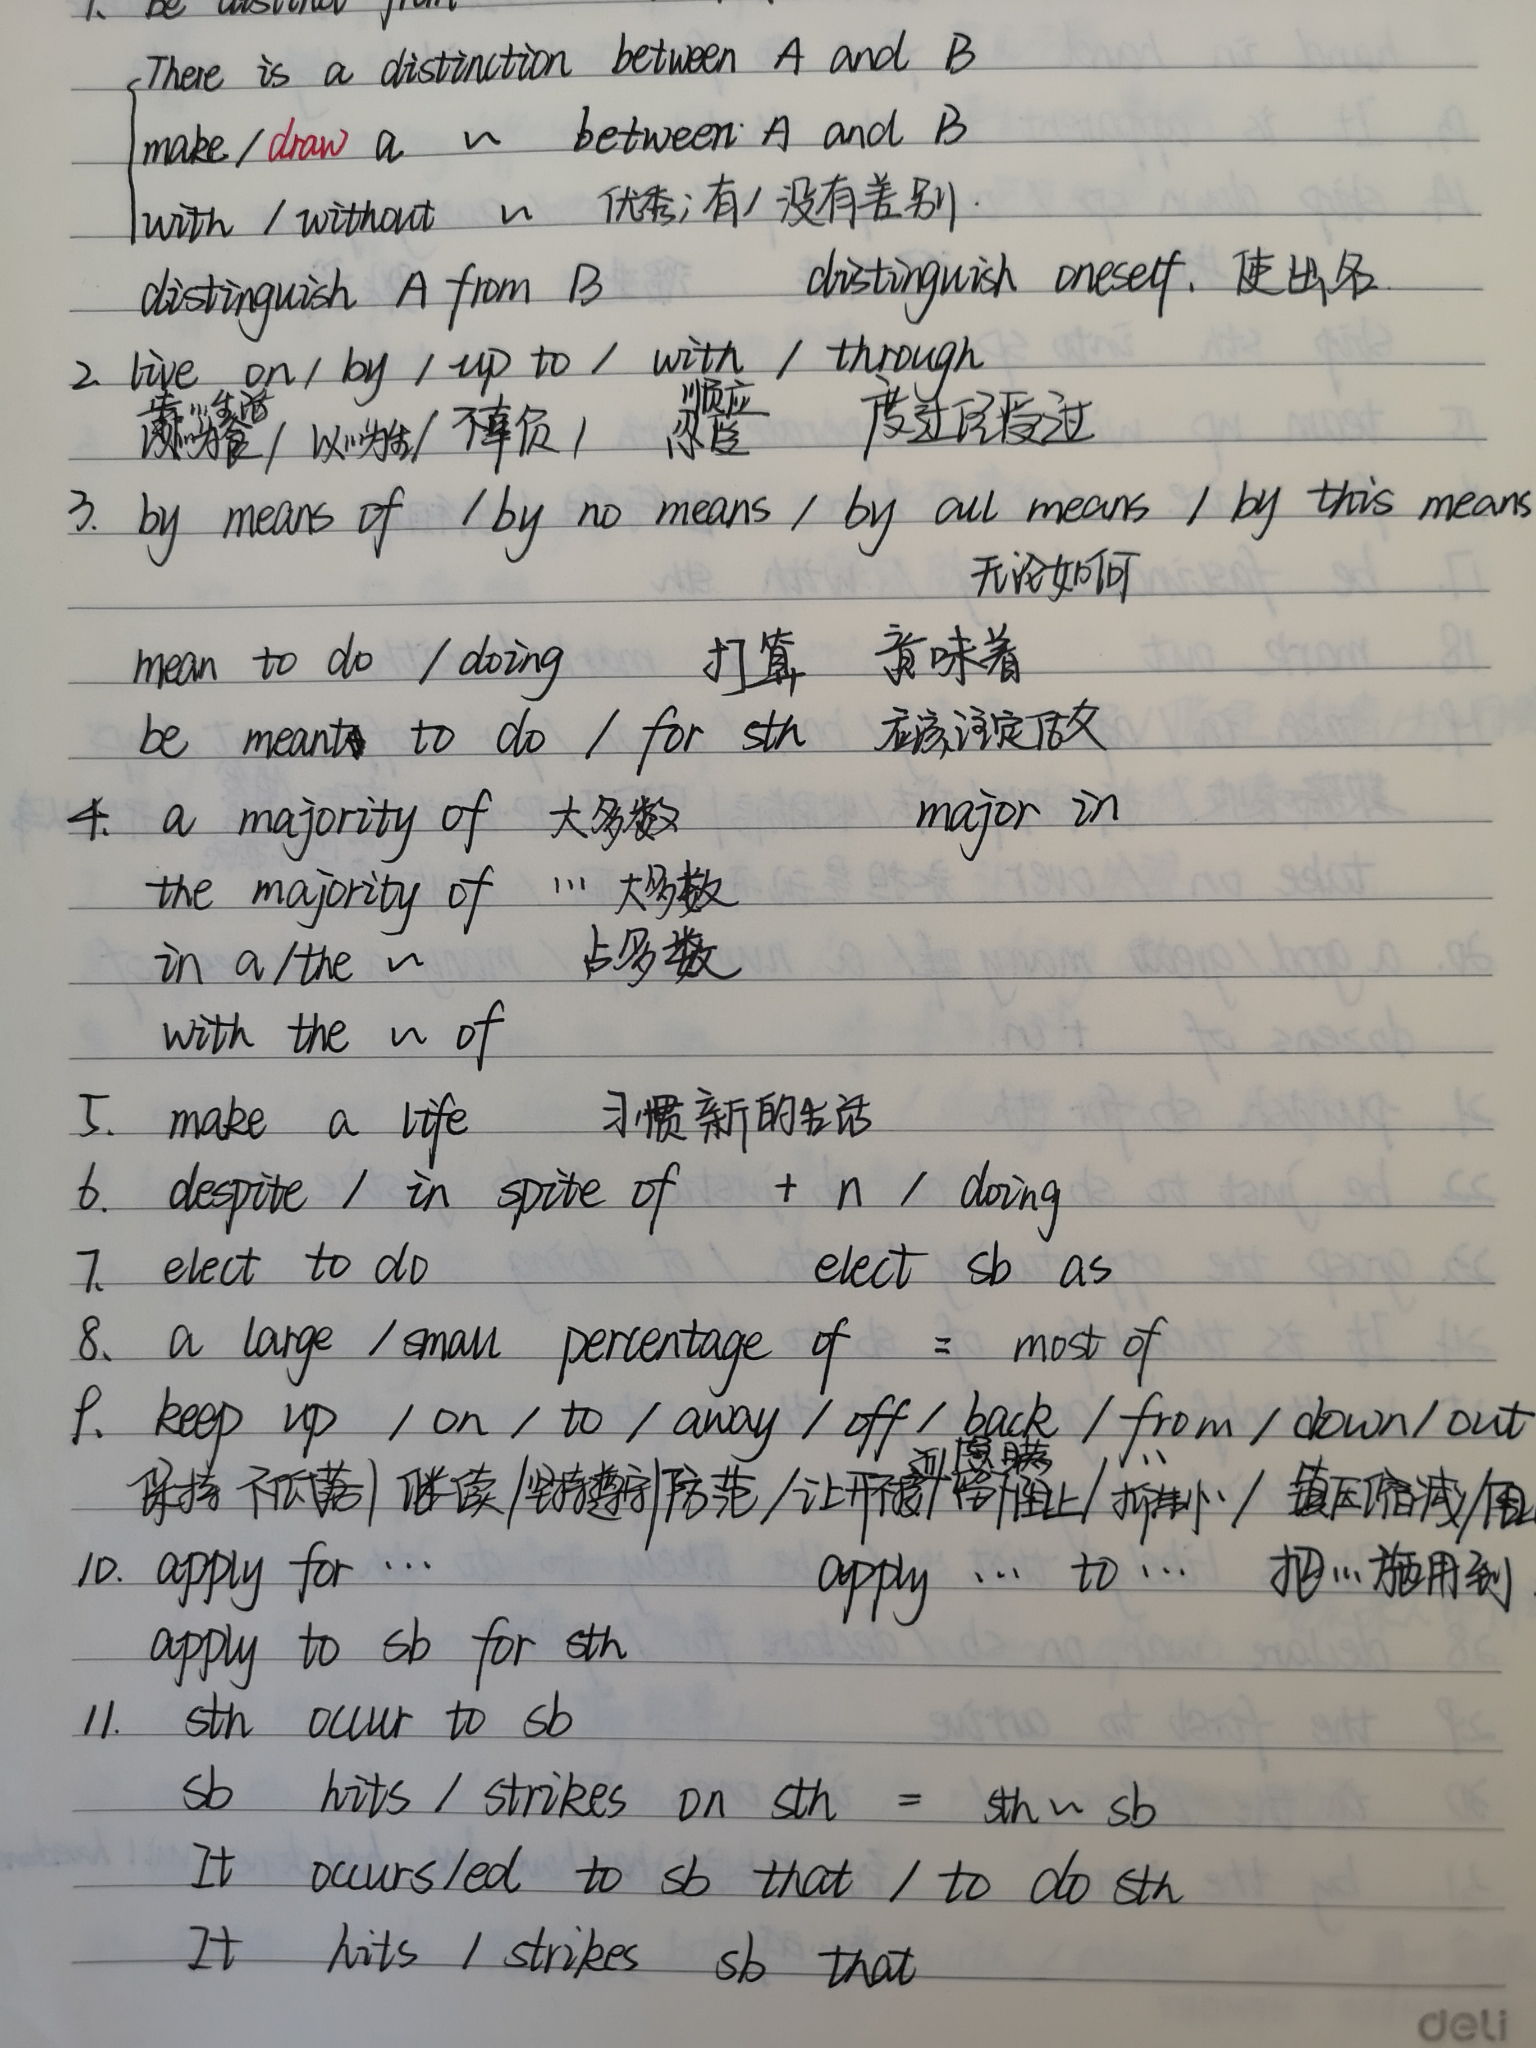 1. be distinct from
There is a distinction between A and B
make / draw a ~ between A and B
with / without ~ 优秀; 有 / 没有差别.
distinguish A from B distinguish oneself. 使出名
2. live on / by / up to / with / through
靠…生活 顺应
以…为食 / 以…为生 / 不辜负 / 忍受 度过 经受过
3. by means of / by no means / by all means / by this means
无论如何
mean to do / doing 打算 意味着
be meant to do / for sth 应该, 注定做
4. a majority of 大多数 major in
the majority of … 大多数
in a/the ~ 占多数
with the ~ of
5. make a life 习惯新的生活
6. despite / in spite of + n / doing
7. elect to do elect sb as
8. a large / small percentage of = most of
9. keep up / on / to / away / off / back / from / down / out
隐瞒
保持 不低落 / 继续 / 坚持遵守 / 防范 / 让开不接 / 阻止 / / 镇压缩减 /
10. apply for … apply … to … 把…施用到
apply to sb for sth
11. sth occur to sb
sb hits / strikes on sth = sth ~ sb
It occurs/ed to sb that / to do sth
It hits / strikes sb that
deli